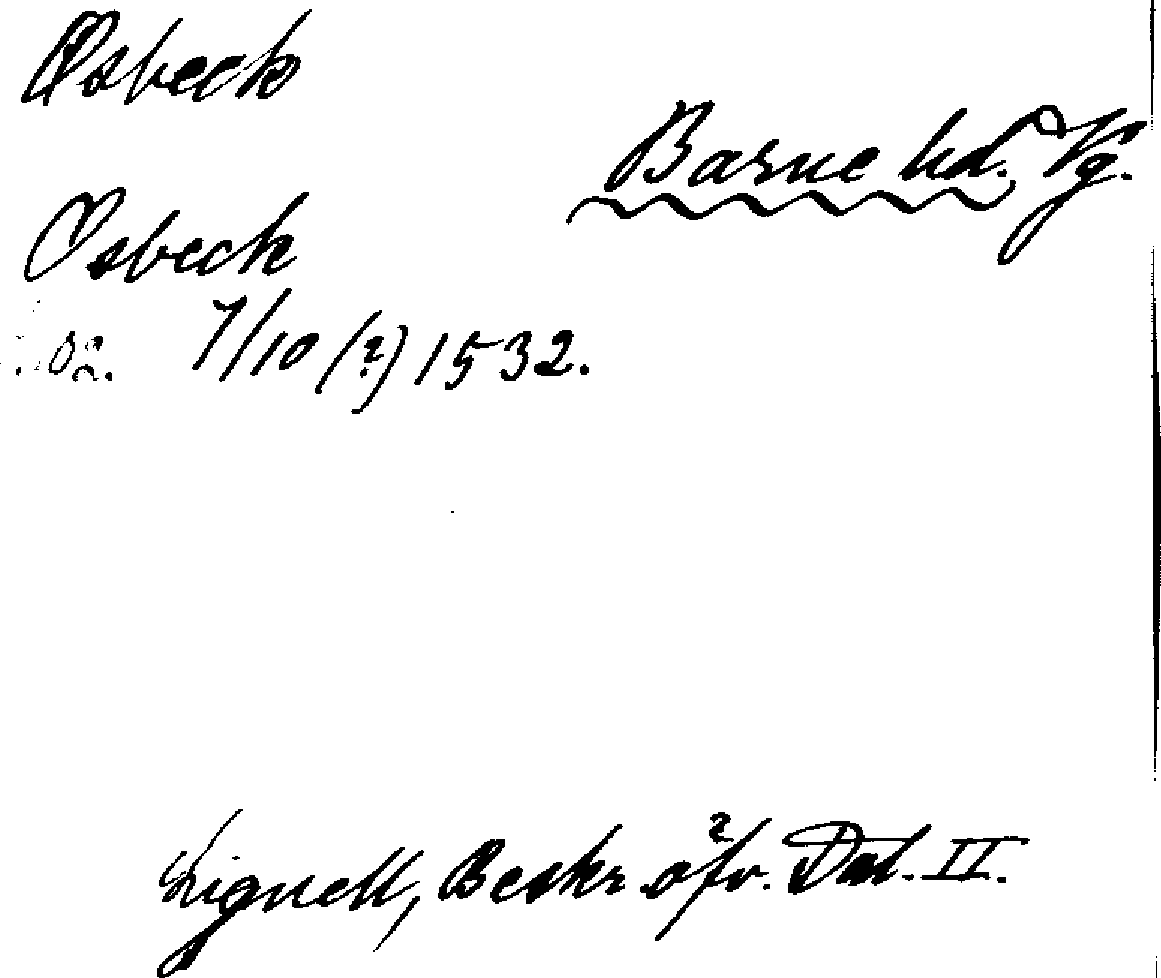 Osbeck
Barne hd. Vg.
Osbeck
7/10 (?) 1532.
Lignell, Beskr. öfv. Dal. II.